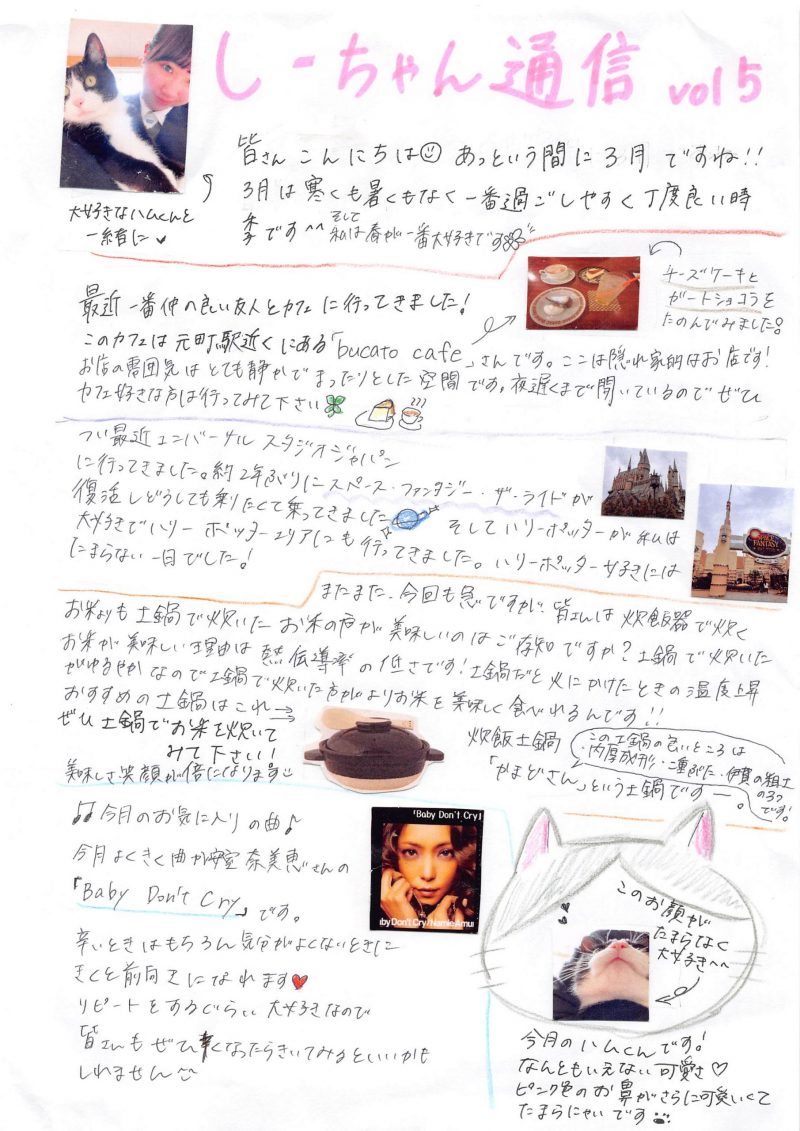 しーちゃん通信 vol 5
皆さんこんにちは☺ あっという間に3月ですね!!
3月は寒くも暑くもなく一番過ごしやすく丁度良い時
季です^^ そして私は春が一番大好きです
大好きなハムくんと
一緒に♥
チーズケーキと
ガートショコラを
たのんでみました。
最近一番仲の良い友人とカフェに行ってきました!
このカフェは元町駅近くにある「bucato cafe」さんです。ここは隠れ家的なお店です!
お店の雰囲気はとても静かでまったりとした空間です。夜遅くまで開いているのでぜひ
カフェ好きな方は行ってみて下さい
つい最近ユニバーサルスタジオジャパン
に行ってきました。約2年ぶりにスペース・ファンタジー・ザ・ライドが
復活しどうしても乗りたくて乗ってきました
そしてハリーポッターが私は
大好きでハリーポッターエリアにも行ってきました。ハリーポッター好きには
たまらない一日でした!
SPACE
FANTASY
またまた、今回も急ですが、皆さんは炊飯器で炊く
お米よりも土鍋で炊いたお米の方が美味しいのはご存知ですか?土鍋で炊いた
お米が美味しい理由は熱伝導率の低さです!土鍋だと火にかけたときの温度上昇
がゆるやかなので土鍋で炊いた方がよりお米を美味しく食べれるんです!!
おすすめの土鍋はこれ→
ぜひ土鍋でお米を炊いて
みて下さい!
美味しさ笑顔が倍になります
炊飯土鍋
「かまどさん」という土鍋ですー。
この土鍋の良いところは
・肉厚成形・二重ぶた・伊賀の粗土
の3つ
です!
♫今月のお気に入りの曲♪
今月よくきく曲が安室奈美恵さんの
「Baby Don't Cry」です。
辛いときはもちろん気分がよくないときに
きくと前向きになれます♥
リピートをするぐらい大好きなので
皆さんもぜひ辛くなったらきいてみるといいかも
しれません
「Baby Don't Cry」
aby Don't Cry / Namie Amur
このお顔が
たまらなく
大好き^^
今月のハムくんです!
なんともいえない可愛さ♡
ピンク色のお鼻がさらに可愛いくて
たまらにゃいです